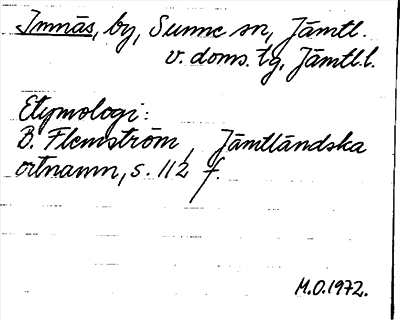 Imnäs, by, Sunne sn, Jämtl.
v. doms. tg, Jämtl.l.
Etymologi:
B. Flemström, Jämtländska
ortnamn, s. 112 f.
M.O.1972.